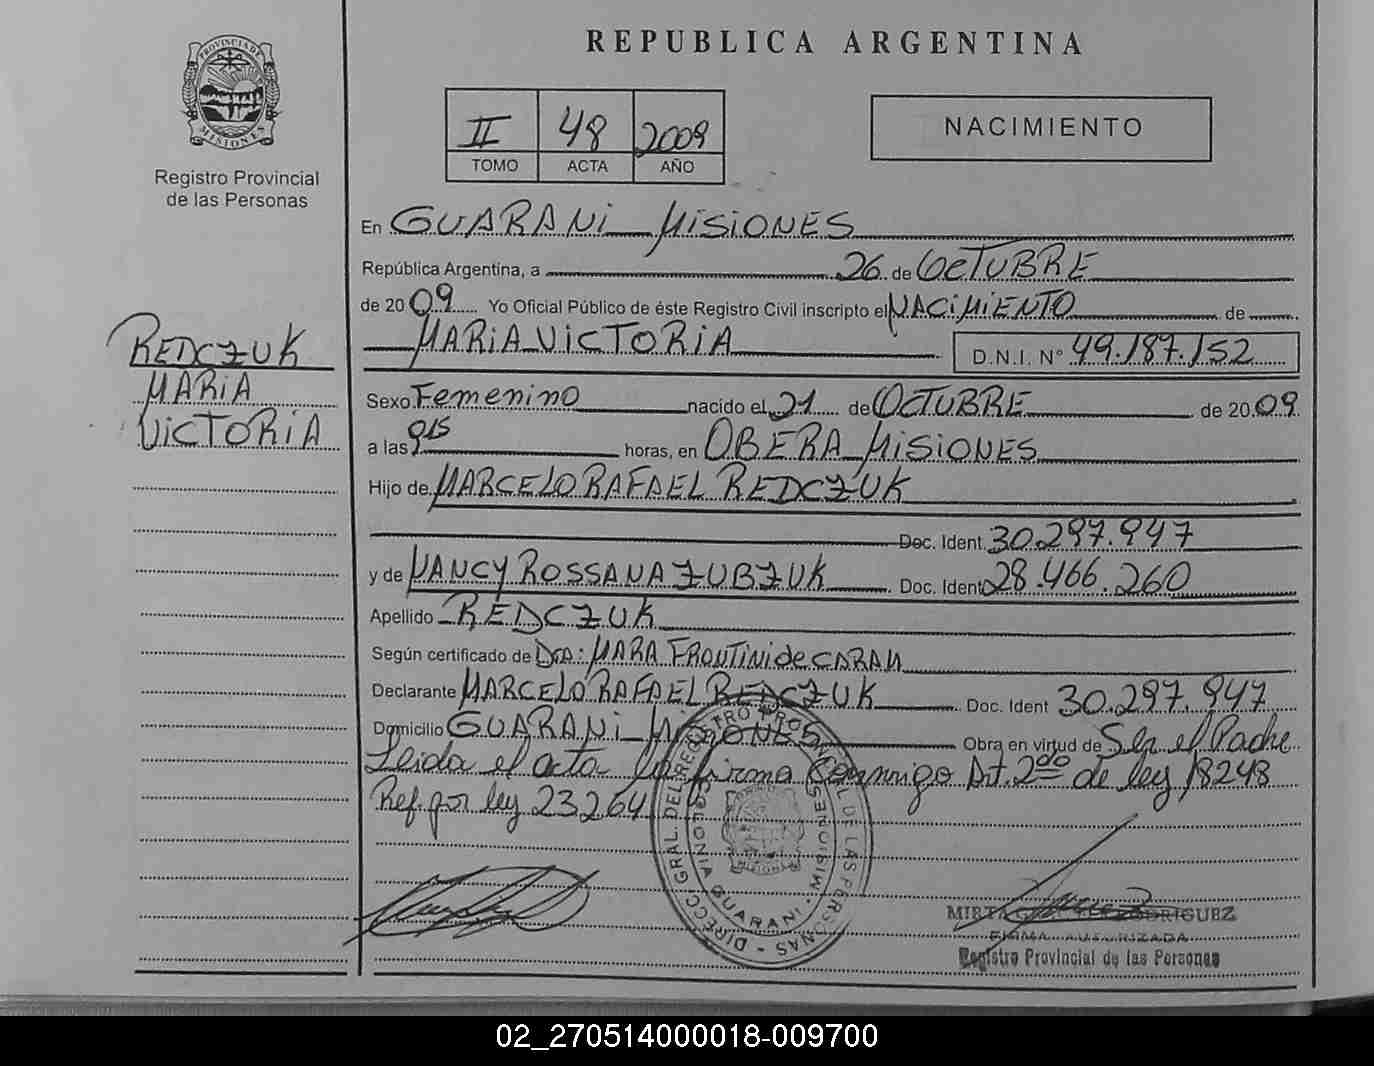 REPUBLICA ARGENTINA
PROVINCIA DE
MISIONES
Registro Provincial
de las Personas
II 48 2009
TOMO ACTA AÑO
NACIMIENTO
En GUARANI MISIONES
República Argentina, a 26 de OCTUBRE
de 20 09 Yo Oficial Público de éste Registro Civil inscripto el NACIMIENTO de
MARIA VICTORIA D.N.I. N° 49.187.152
REDCZUK
MARIA
VICTORIA
Sexo Femenino nacido el 21 de OCTUBRE de 20 09
a las 9 15 horas, en OBERA MISIONES
Hijo de MARCELO RAFAEL REDCZUK
Doc. Ident. 30.297.947
y de NANCY ROSSANA ZUBZUK Doc. Ident 28.466.260
Apellido REDCZUK
Según certificado de Dra: MARA FRONTINI de CARAM
Declarante MARCELO RAFAEL REDCZUK Doc. Ident 30.297.947
Domicilio GUARANI MISIONES Obra en virtud de Ser el Padre
Leida el acta la firma Conmigo Art. 2do de ley 18248
Ref. por ley 23264
DIRECC. GRAL. DEL REGISTRO PROVINCIAL DE LAS PERSONAS
GUARANI - MISIONES
MIRTA RODRIGUEZ
FIRMA AUTORIZADA
Registro Provincial de las Personas
02_270514000018-009700